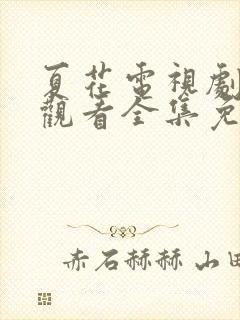 夏花電視劇
觀看全集免
赤石赫赫 山田